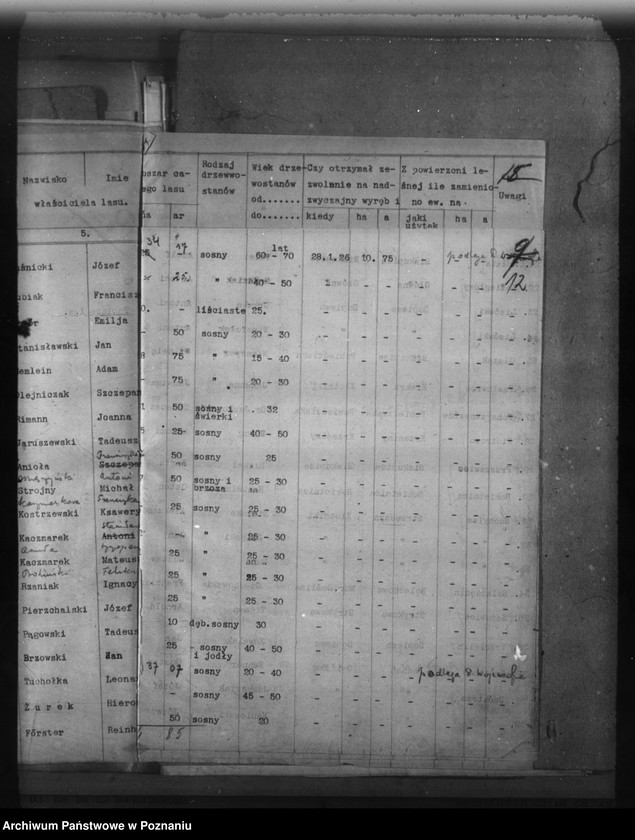 15
Nazwisko Imie
właściciela lasu.
bszar ca-
ego lasu
ha ar
Rodzaj
drzewo-
stanów
Wiek drze-
wostanów
od.......
do.......
Czy otrzymał ze-
zwolenie na nad-
zwyczajny wyrąb i
kiedy ha a
Z powierzoni le-
śnej ile zamienio-
no ew. na
jaki
użytek
ha a
Uwagi
5.
34 17
lat
Józef - sosny 60 - 70 28.1.26 10. 75 - podlega
9
12
Francisz 25 " 40 - 50 - - - - - -
Emilja - liściaste 25. - - - - - -
tanisławski Jan 50 sosny 20 - 30 - - - - - -
emlein Adam 8 75 " 15 - 40 - - - - - -
lejniczak Szczepan - 75 " 20 - 30 - - - - - -
imann Joanna 1 50 sosny i
świerki 32 - - - - - -
Jaruszewski Tadeusz 5 25 sosny 40 - 50 - - - - - -
Anioła Szczepa 50 sosny 25 - - - - - -
Antoni
Strojny Michał 50 sosny i
brzoza 25 - 30 - - - - - -
Kaczmarkowa Franciszka
Kostrzewski Ksawery 25 sosny 25 - 30 - - - - - -
Kacznarek Antoni - " 25 - 30 - - - - - -
Kacznarek Mateus 25 " 25 - 30 - - - - - -
Rzaniak Ignacy 25 " 25 - 30 - - - - - -
Pierzchalski Józef 25 " 25 - 30 - - - - - -
Pągowski Tadeus 10 dęb.sosny 30 - - - - - -
Brzowski Jan 25 sosny
i jodły 40 - 50 - - - - - -
Tuchołka Leona 37 07 sosny 20 - 40 - - - podlega
Żurek Hiero - sosny 45 - 50 - - - - - -
Förster Reinh 50 sosny 20 - - - - - -
85
Archiwum Państwowe w Poznaniu